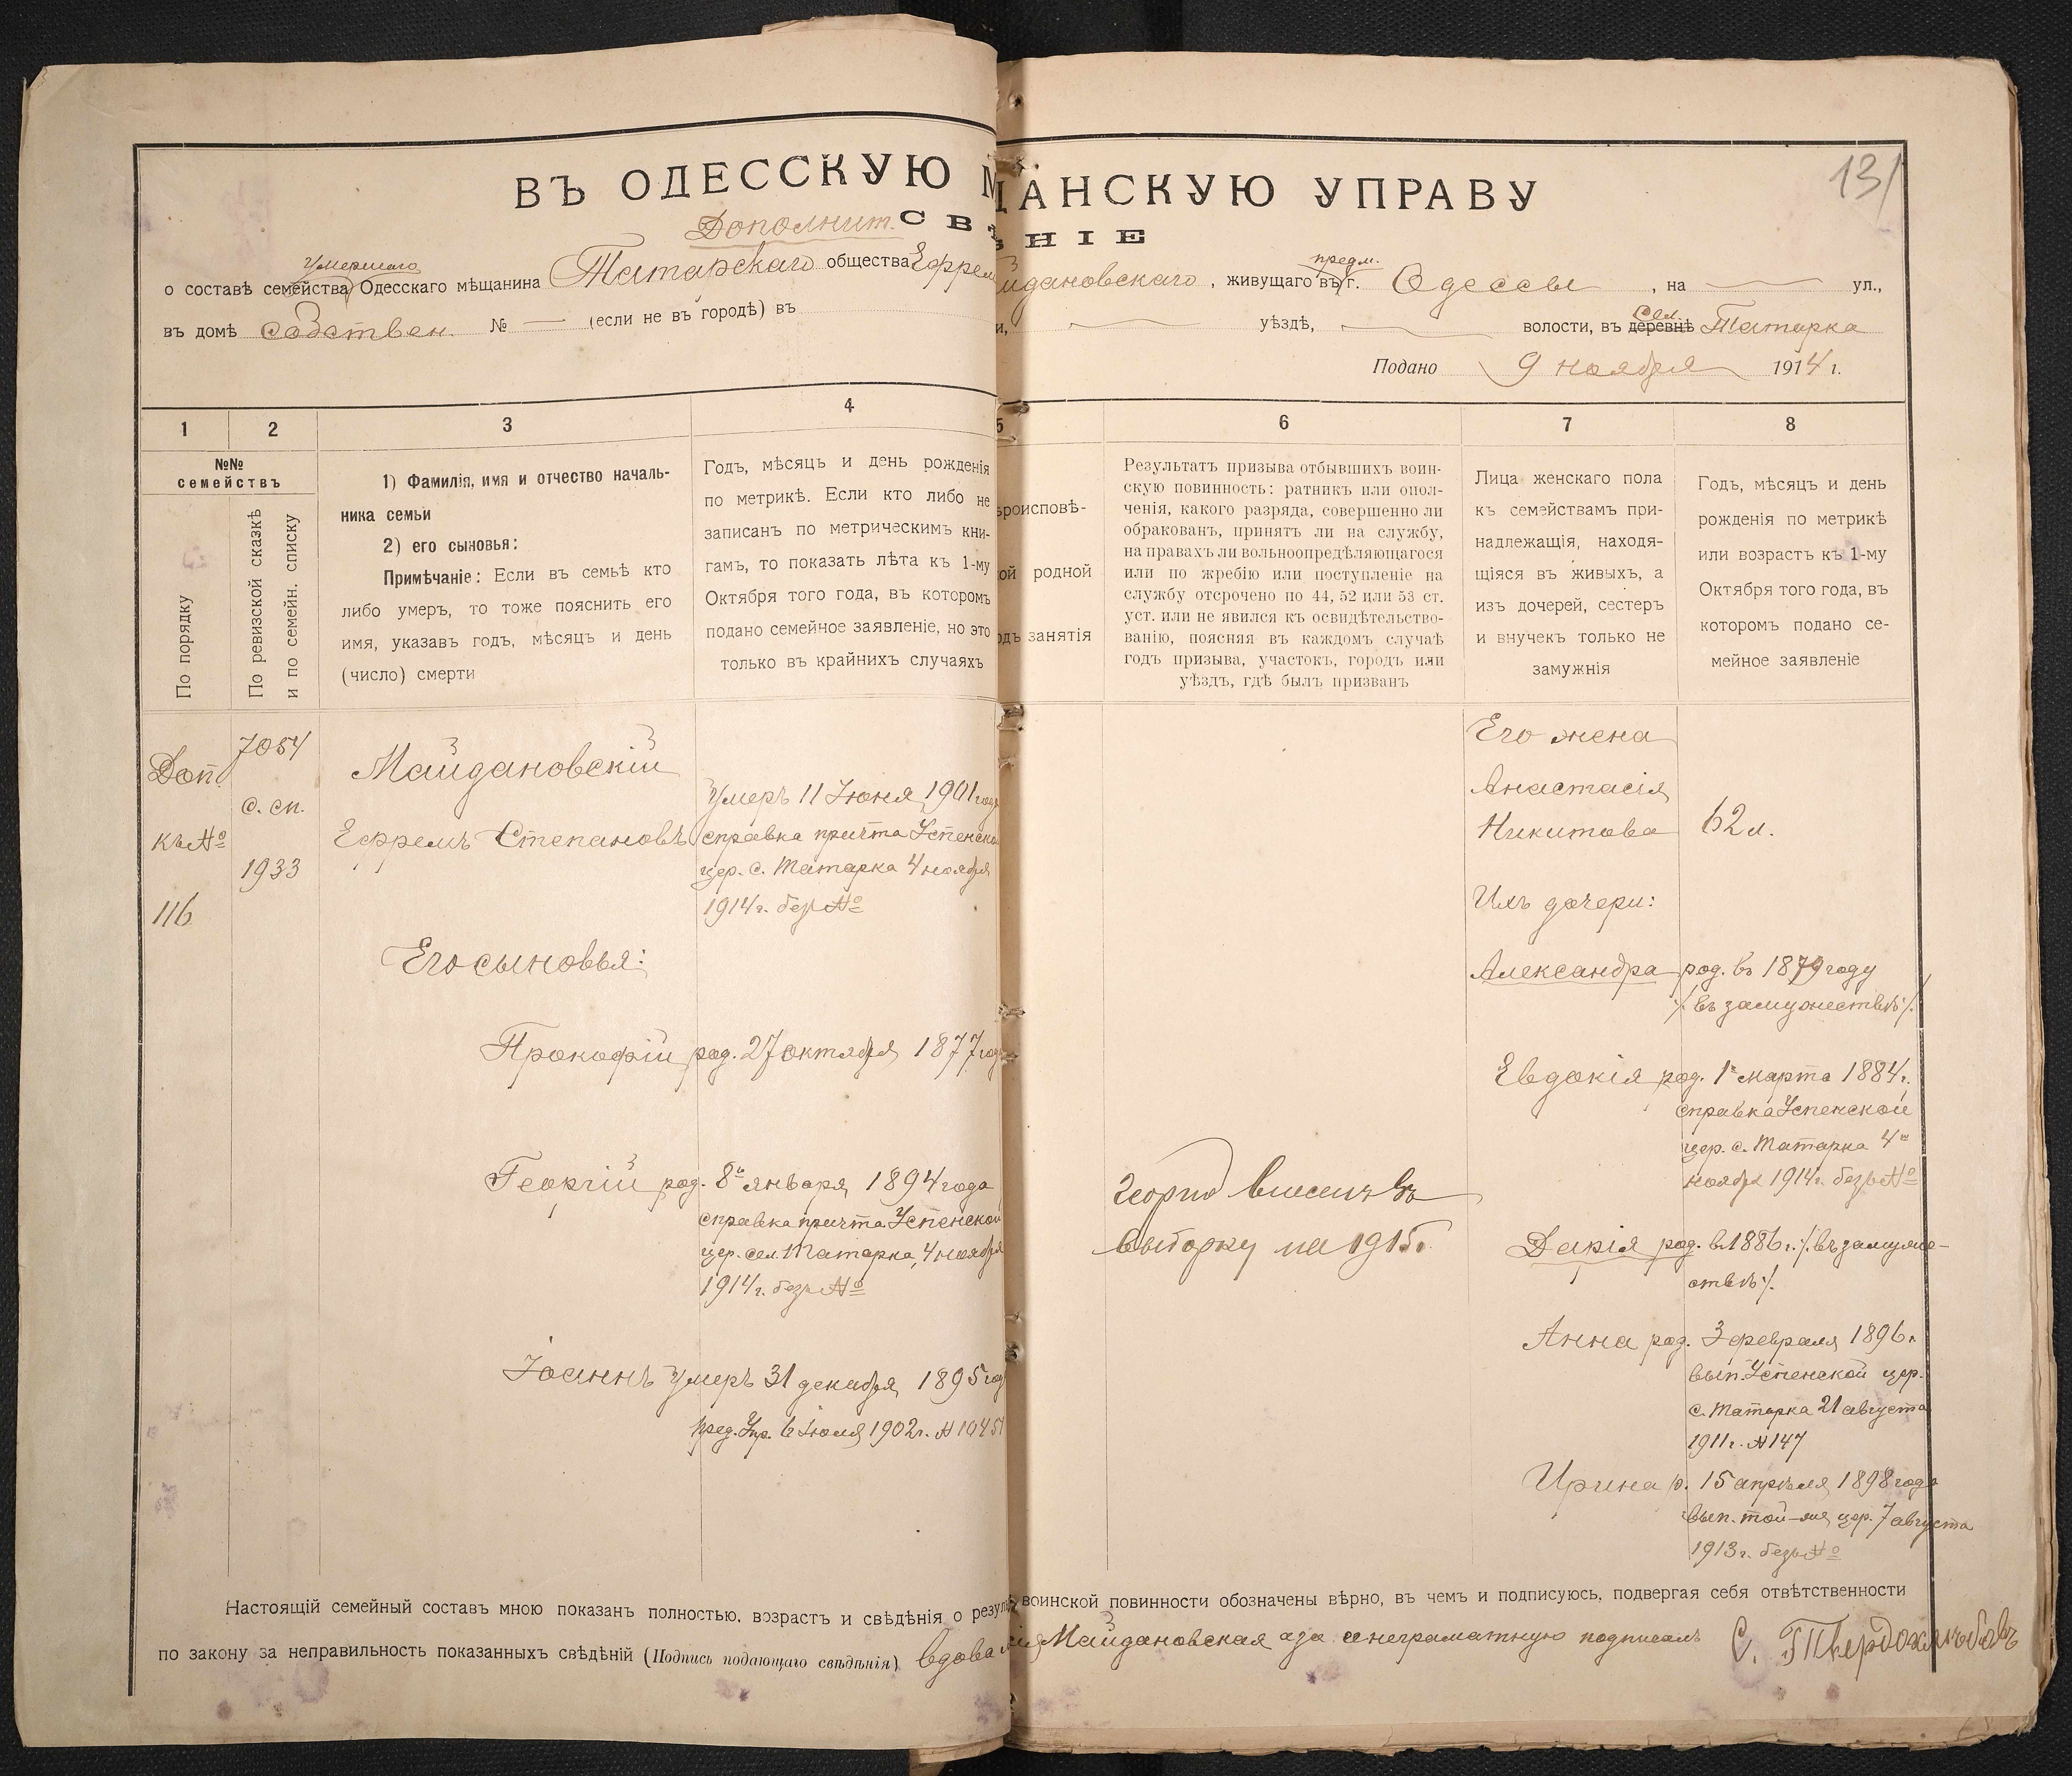 131
ВЪ ОДЕССКУЮ М ЩАНСКУЮ УПРАВУ
Дополнит. СВѢ НІЕ
умершаго
о составѣ семейства Одесскаго мѣщанина Татарскаго общества Ефрем йдановскаго, живущаго въ г. предм. Одессы, на — ул.,
въ домѣ собствен. № — (если не въ городѣ) въ и, — уѣздѣ, — волости, въ деревнѣ сел. Татарка
Подано 9 ноября 1914 г.
1 2 3 4 5 6 7 8
№№ семействъ
По порядку
По ревизской сказкѣ
и по семейн. списку
1) Фамилія, имя и отчество началь-
ника семьи
2) его сыновья:
Примѣчаніе: Если въ семьѣ кто
либо умеръ, то тоже пояснить его
имя, указавъ годъ, мѣсяцъ и день
(число) смерти
Годъ, мѣсяцъ и день рожденія
по метрикѣ. Если кто либо не
записанъ по метрическимъ кни-
гамъ, то показать лѣта къ 1-му
Октября того года, въ которомъ
подано семейное заявленіе, но это
только въ крайнихъ случаяхъ
роисповѣ-
ой родной
одъ занятія
Результатъ призыва отбывшихъ воин-
скую повинность: ратникъ или опол-
ченія, какого разряда, совершенно ли
обракованъ, принятъ ли на службу,
на правахъ ли вольноопредѣляющагося
или по жребію или поступленіе на
службу отсрочено по 44, 52 или 53 ст.
уст. или не явился къ освидѣтельство-
ванію, поясняя въ каждомъ случаѣ
годъ призыва, участокъ, городъ или
уѣздъ, гдѣ былъ призванъ
Лица женскаго пола
къ семействамъ при-
надлежащія, находя-
щіяся въ живыхъ, а
изъ дочерей, сестеръ
и внучекъ только не
замужнія
Годъ, мѣсяцъ и день
рожденія по метрикѣ
или возрастъ къ 1-му
Октября того года, въ
которомъ подано се-
мейное заявленіе
Доп.
къ №
116
7054
с. сп.
1933
Майдановскій
Ефремъ Степановъ
умеръ 11 Іюня 1901 года
справка причта Успенско
цер. с. Татарка 4 ноября
1914 г. безъ №
Его сыновья:
Прокофій род. 27 октября 1877 год
Георгій род. 8го января 1894 года
справка причта Успенской
цер. сел. Татарка, 4 ноября
1914 г. безъ №
Іоаннъ умеръ 31 декабря 1895 год
пред. Упр. 6 Іюля 1902 г. № 10451
Георгій внесенъ въ
выборку на 1915 г.
Его жена
Анастасія
Никитова 62 л.
Ихъ дочери:
Александра род. въ 1879 году
/. въ замужествѣ ./
Евдокія род. 1го марта 1884 г.
справка Успенской
цер. с. Татарка 4го
ноября 1914 г. безъ №
Дарія род. в 1886 г. /. въ замуже-
ствѣ ./
Анна род. 3 февраля 1896 г.
вып. Успенской цер.
с. Татарка 21 августа
1911 г. № 147
Ирина р. 15 апрѣля 1898 года
вып. той-же цер. 7 августа
1913 г. безъ №
Настоящій семейный составъ мною показанъ полностью, возрастъ и свѣдѣнія о резуль воинской повинности обозначены вѣрно, въ чемъ и подписуюсь, подвергая себя отвѣтственности
по закону за неправильность показанныхъ свѣдѣній (Подпись подающаго свѣдѣнія) вдова Майдановская а за неграматную подписалъ С. Твердохлѣбовъ